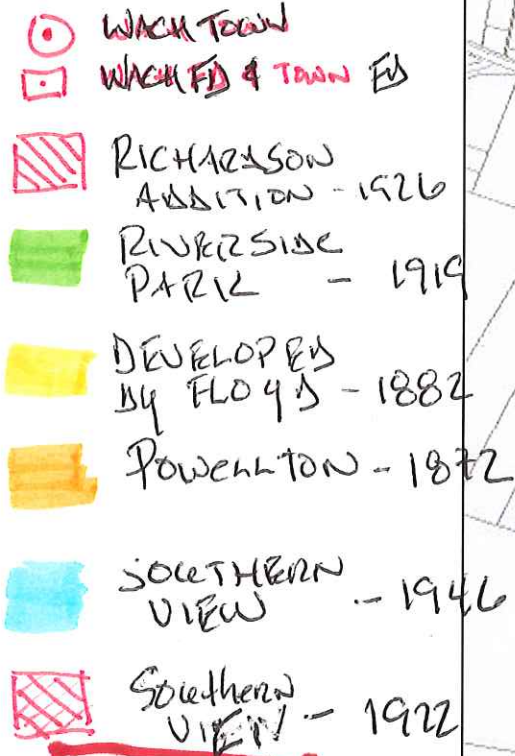 WACH TOWN
WACH FD & TOWN FD
RICHARDSON
ADDITION - 1926
RIVERSIDE
PARK - 1919
DEVELOPED
BY FLOYD - 1882
POWELLTON - 1872
SOUTHERN
VIEW - 1946
Southern
VIEW - 1922